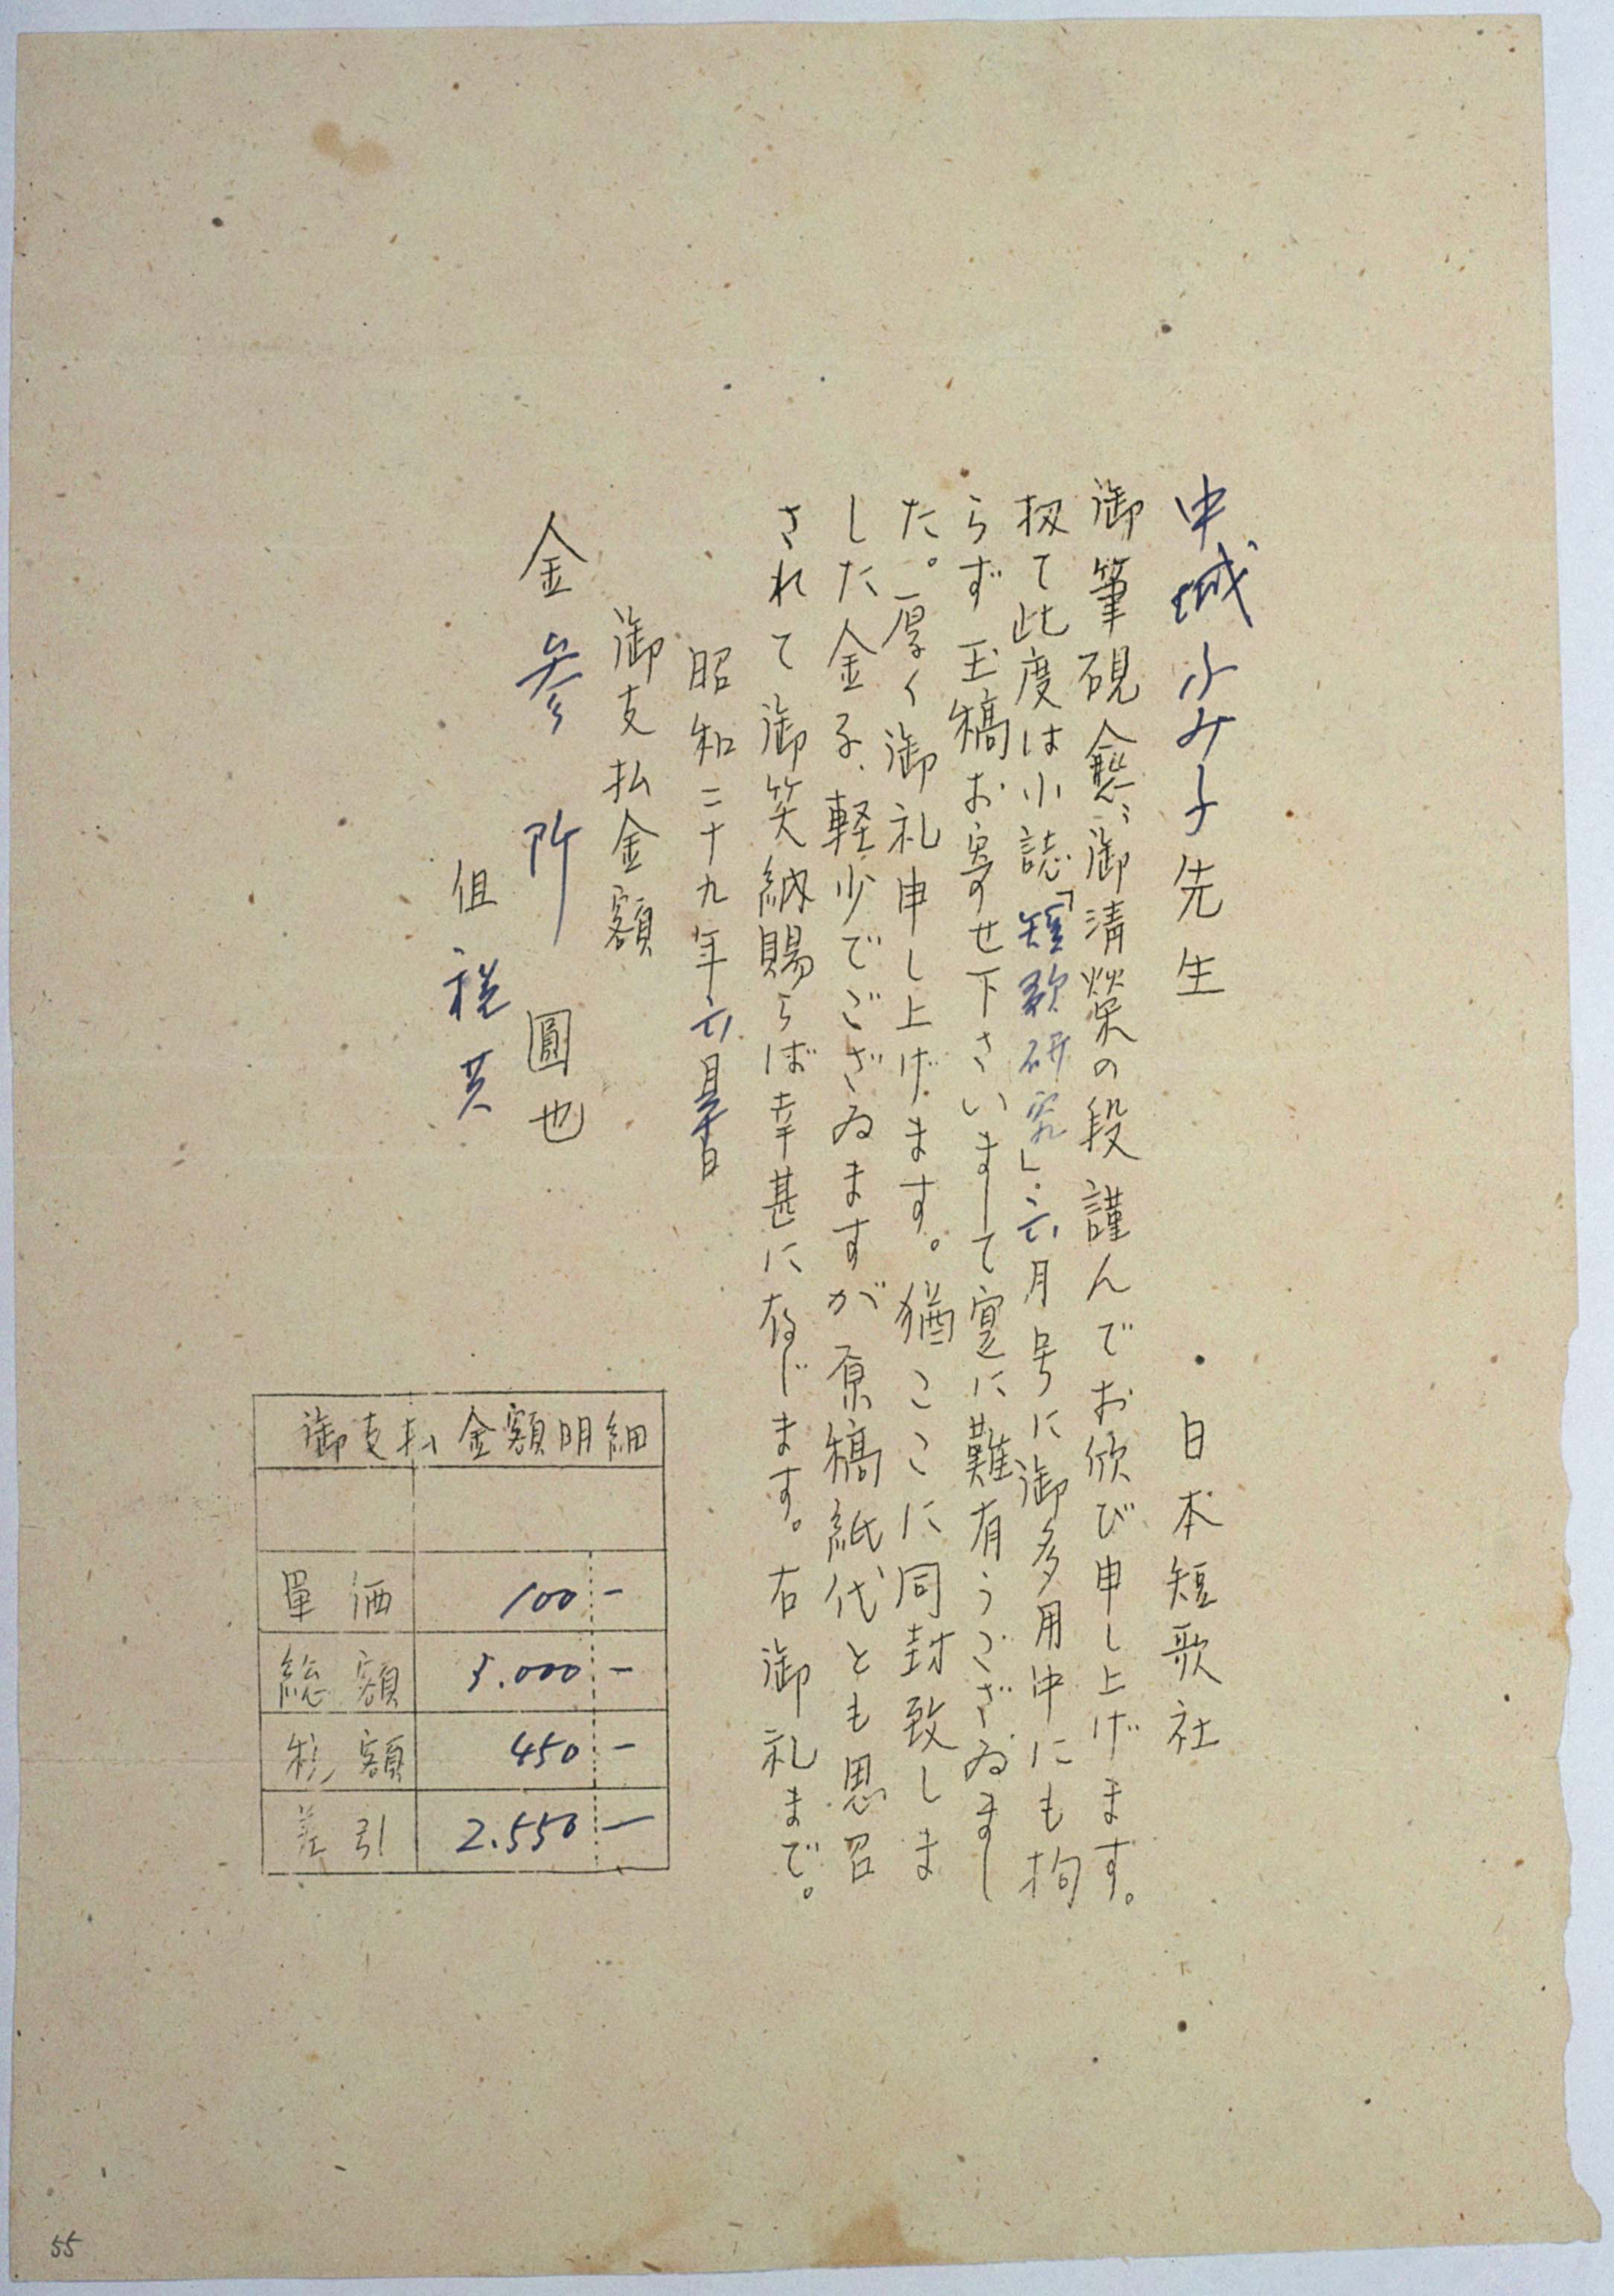 中城ふみ子先生　日本短歌社
御筆硯愈〻御清榮の段謹んでお欣び申し上げます。
扨て此度は小誌「短歌研究」六月号に御多用中にも拘
らず玉稿お寄せ下さいまして寔に難有うございまし
た。厚く御礼申し上げます。猶ここに同封致しま
した金子、軽少でございますが原稿紙代とも思召
されて御笑納賜らば幸甚に存じます。右御礼まで。
昭和二十九年六月 日
御支払金額
金参阡圓也
但税共
御支払金額明細
單価 100-
総額 3.000-
税額 450-
差引 2.550-
55